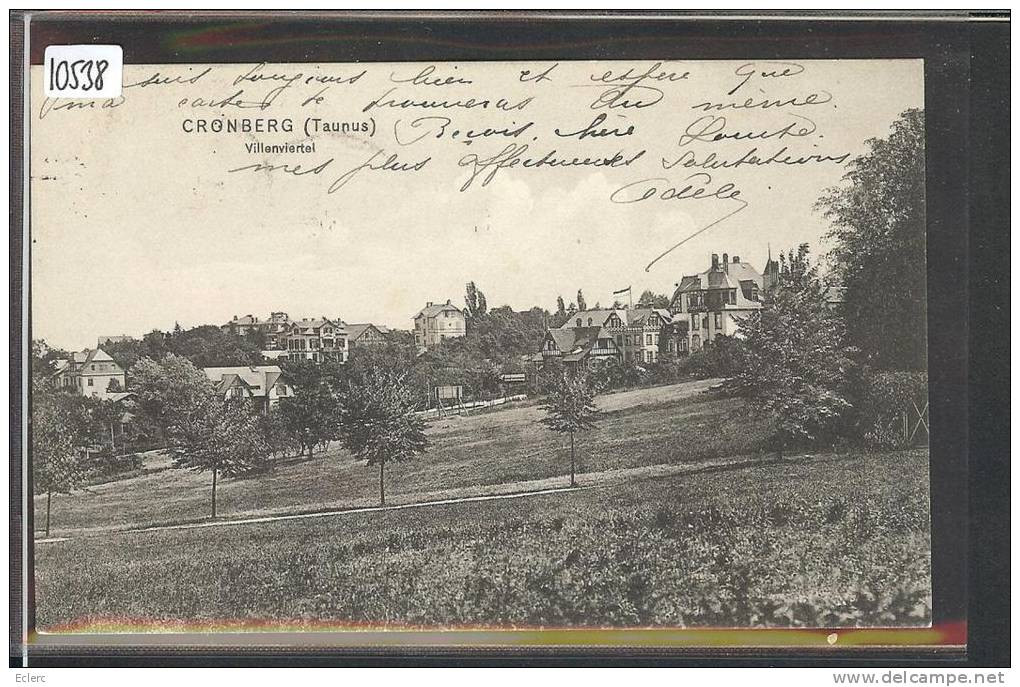 10538
suis toujours bien et espère que
ma carte te trouveras du même.
CRONBERG (Taunus)
Reçois, chère
Villenviertel
mes plus affectueuses salutations
Adèle
Eclerc
www.delcampe.net